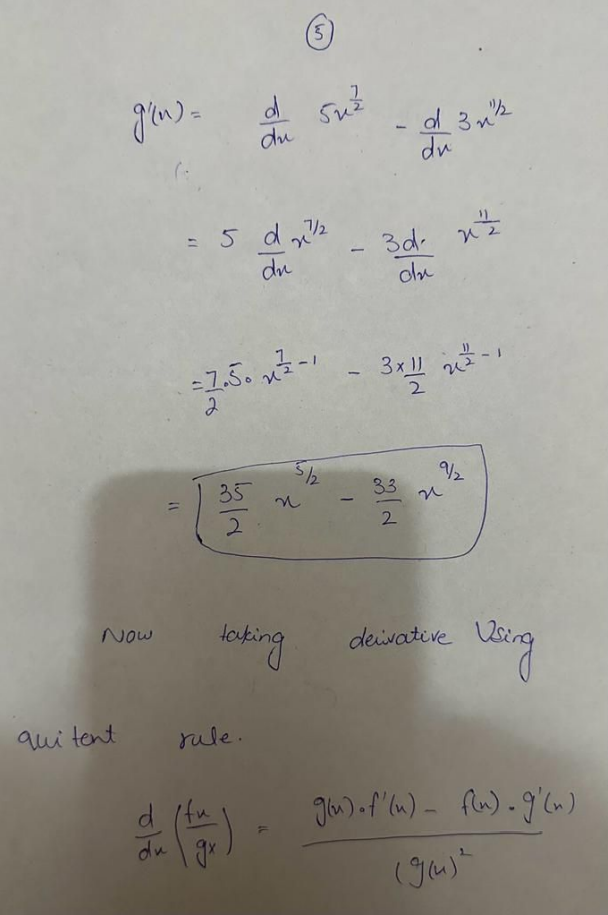 5
g'(x) = d/dx 5x^7/2 - d/dx 3x^11/2
= 5 d/dx x^7/2 - 3d/dx x^11/2
= 7/2 . 5 . x^7/2 - 1 - 3 × 11/2 x^11/2 - 1
= 35/2 x^5/2 - 33/2 x^9/2
Now taking deivative Using
quitent rule.
d/dx (fx/gx) = g(x) . f'(x) - f(x) . g'(x) / (g(x)^2